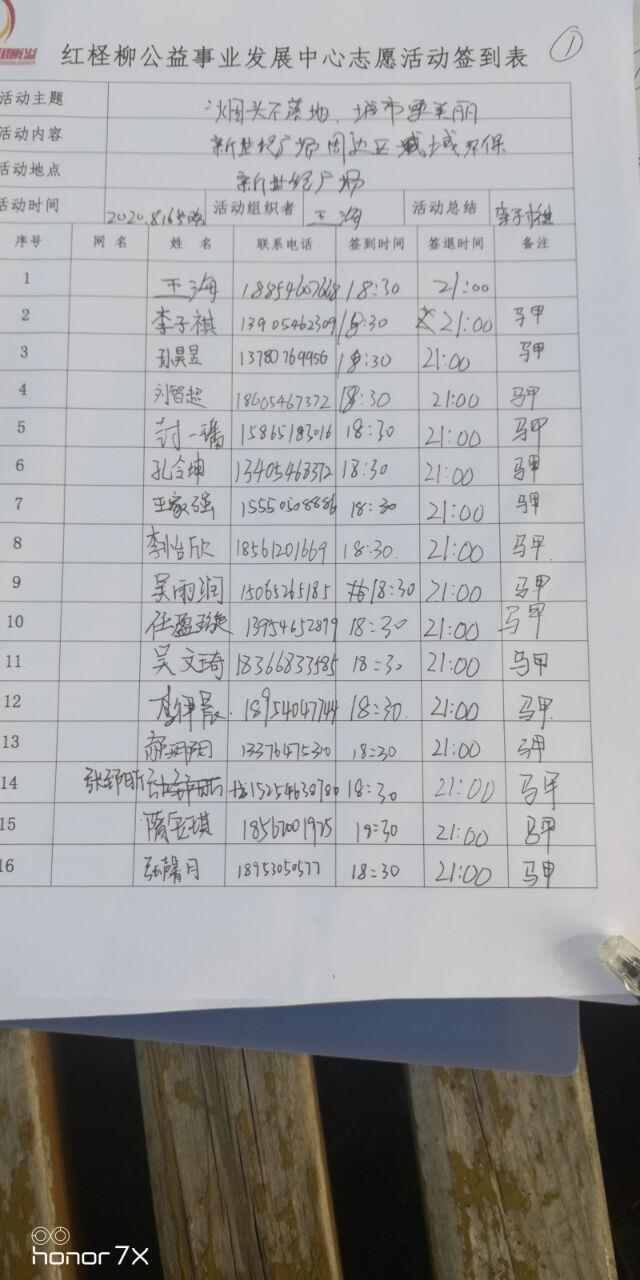 红柽柳公益事业发展中心志愿活动签到表 ①
活动主题 烟头不落地、城市更美丽
活动内容 新世纪广场周边区域 环保
活动地点 新世纪广场
活动时间 2020.8.16 活动组织者 王海 活动总结 李子祺
序号 网名 姓名 联系电话 签到时间 签退时间 备注
1 王海 18854607668 18:30 21:00
2 李子祺 13905462309 18:30 21:00 马甲
3 孙昊昱 13780769956 18:30 21:00 马甲
4 刘智超 18605467372 18:30 21:00 马甲
5 封一璠 15865183016 18:30 21:00 马甲
6 孔令坤 13405463372 18:30 21:00 马甲
7 王家强 15550508886 18:30 21:00 马甲
8 李怡欣 18561201669 18:30 21:00 马甲
9 吴雨润 15065265185 18:30 21:00 马甲
10 任盈璇 13954652879 18:30 21:00 马甲
11 吴文琦 18366833585 18:30 21:00 马甲
12 18954047744 18:30 21:00 马甲
13 13376475310 18:30 21:00 马甲
14 张郅昕 15254638780 18:30 21:00 马甲
15 隋 琪 18562001975 18:30 21:00 马甲
16 张馨月 18953050577 18:30 21:00 马甲
honor 7X